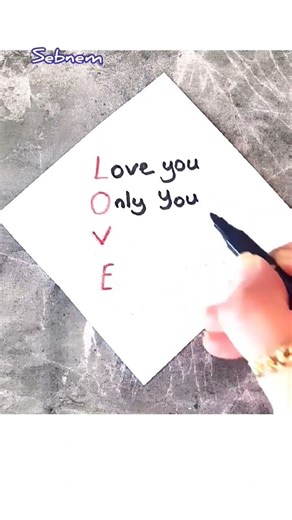 Sebnem
Love you
Only You
V
E